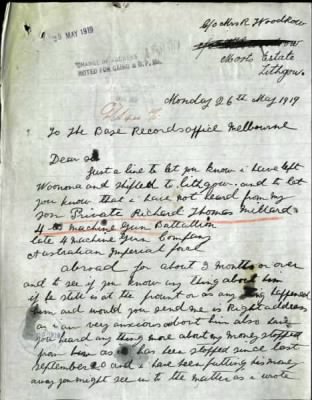 29 MAY 1919
C/o Mrs R. Woodrow
Morts Estate
Lithgow.
CHANGE OF ADDRESS
NOTED FOR CAIRO & B.P.
Monday 26th May 1919
To The Base Records office Melbourne
Dear Sir
Just a line to let you know i have left
Woonona and shifted to Lithgow. and to let
you know that i have not heard from my
son Private Richard Thomas Millard
4th Machine Gun Battallion
late 4 Machine Gun Company
Australian Imperial force
abroad for about 2 months or over
and to see if you know any thing about him
if he still is at the front or as any thing happened
him and would you send me is Right address
as i am very anxious about him also have
you heard any thing more about my money stopped
from him as it has been stopped since last
September and i have been putting his money
away you might see in to the matter as i wrote